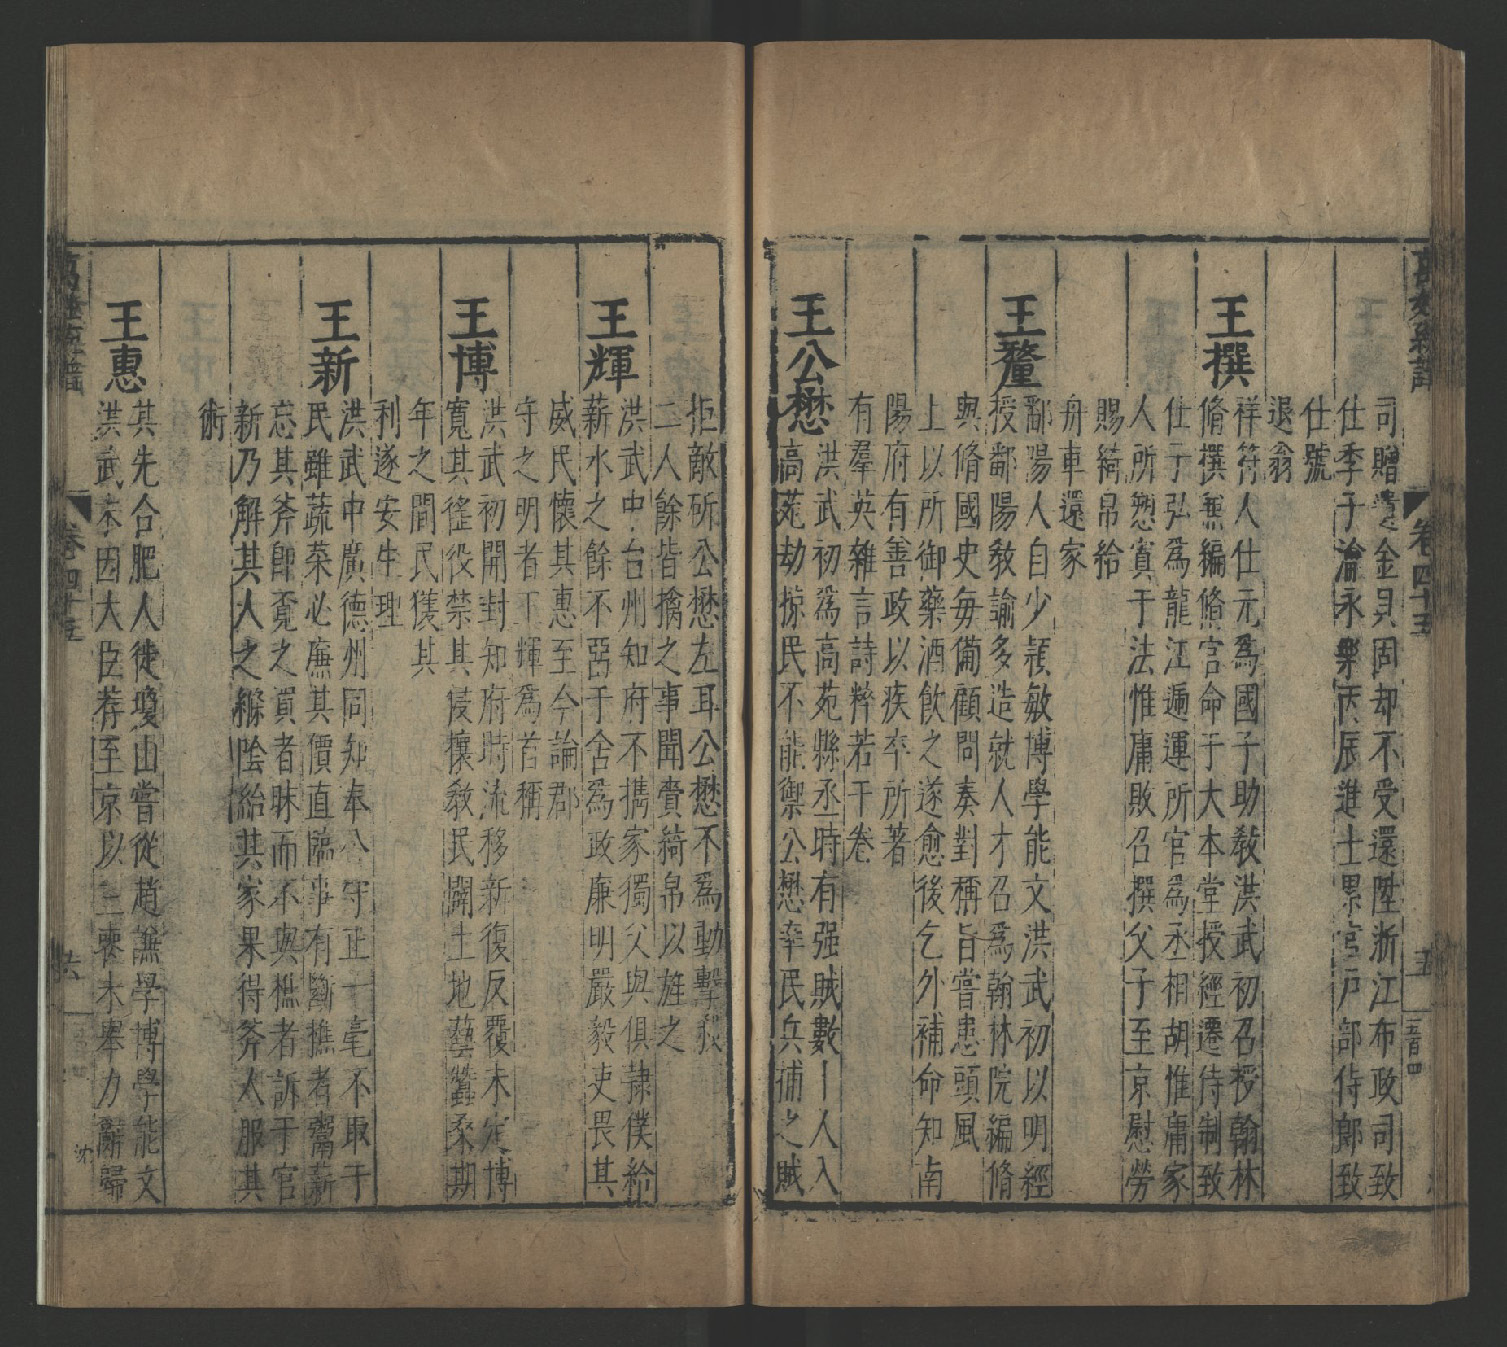 萬姓統譜
卷四十五
五
司贈遺金具固却不受還陞浙江布政司致
仕季子瀹永樂丙辰進士累官戶部侍郎致
仕號
退翁
王撰
祥符人仕元爲國子助教洪武初召授翰林
脩撰兼編脩官命于大本堂授經遷侍制致
仕子弘爲龍江遞運所官爲丞相胡惟庸家
人所愬寘于法惟庸敗召撰父子至京慰勞
賜綺帛給
舟車還家
王釐
鄱陽人自少頴敏博學能文洪武初以明經
授鄱陽敎諭多造就人才召爲翰林院編脩
與脩國史每備顧問奏對稱旨嘗患頭風
上以所御藥酒飲之遂愈後乞外補命知南
陽府有善政以疾卒所著
有羣英雜言詩粹若干卷
王公懋
洪武初爲高苑縣丞時有强賊數十人入
高苑劫掠民不能禦公懋率民兵捕之賊
拒敵斫公懋左耳公懋不爲動擊殺
二人餘皆擒之事聞賚綺帛以旌之
王輝
洪武中台州知府不擕家獨父與俱隷僕給
薪水之餘不舀于舍爲政廉明嚴毅吏畏其
威民懷其惠至今論郡
守之明者王輝爲首稱
王博
洪武初開封知府時流移新復反覆未定博
寬其徭役禁其侵擾敎民闢土地藝蠶桑期
年之間民獲其
利遂安生理
王新
洪武中廣德州同知奉公守正一毫不取于
民雖蔬菜必廉其價直臨事有斷樵者鬻薪
忘其斧卽覔之買者昧而不與樵者訴于官
新乃解其人之縧隂紿其家果得斧人服其
術
王惠
其先合肥人徙瓊山嘗從趙謙學博學能文
洪武末因大臣荐至京以三喪未塟力辭歸
萬姓統譜
卷四十五